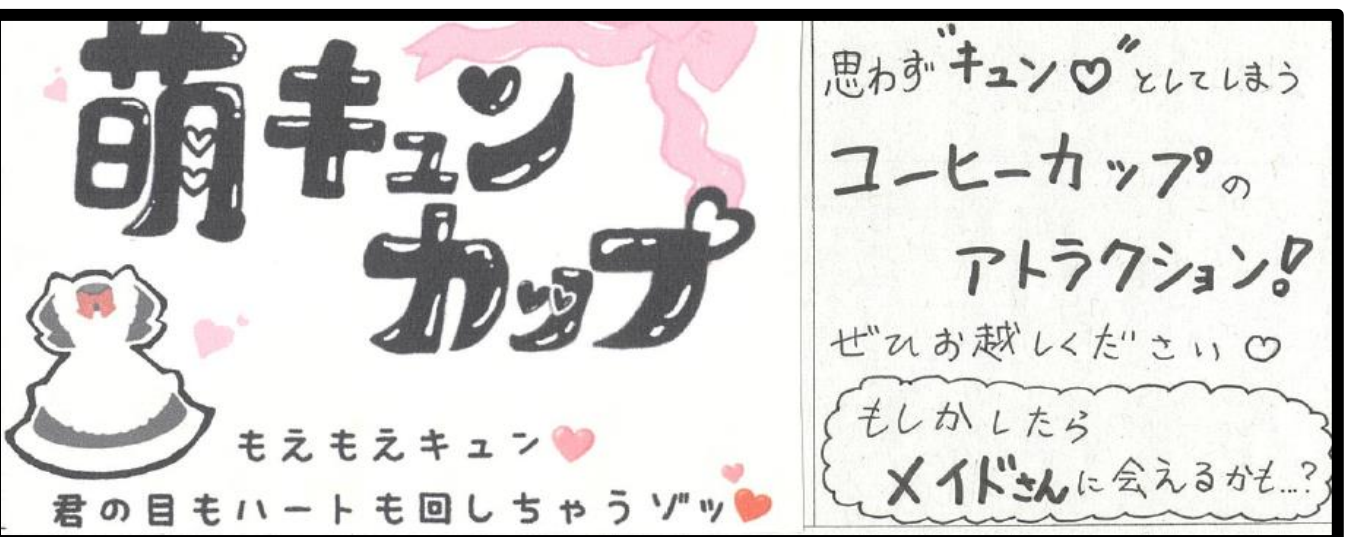 萌キュン
カップ
もえもえキュン❤
君の目もハートも回しちゃうゾッ❤
思わず"キュン♡"としてしまう
コーヒーカップの
アトラクション!
ぜひお越しください♡
もしかしたら
メイドさんに会えるかも…?